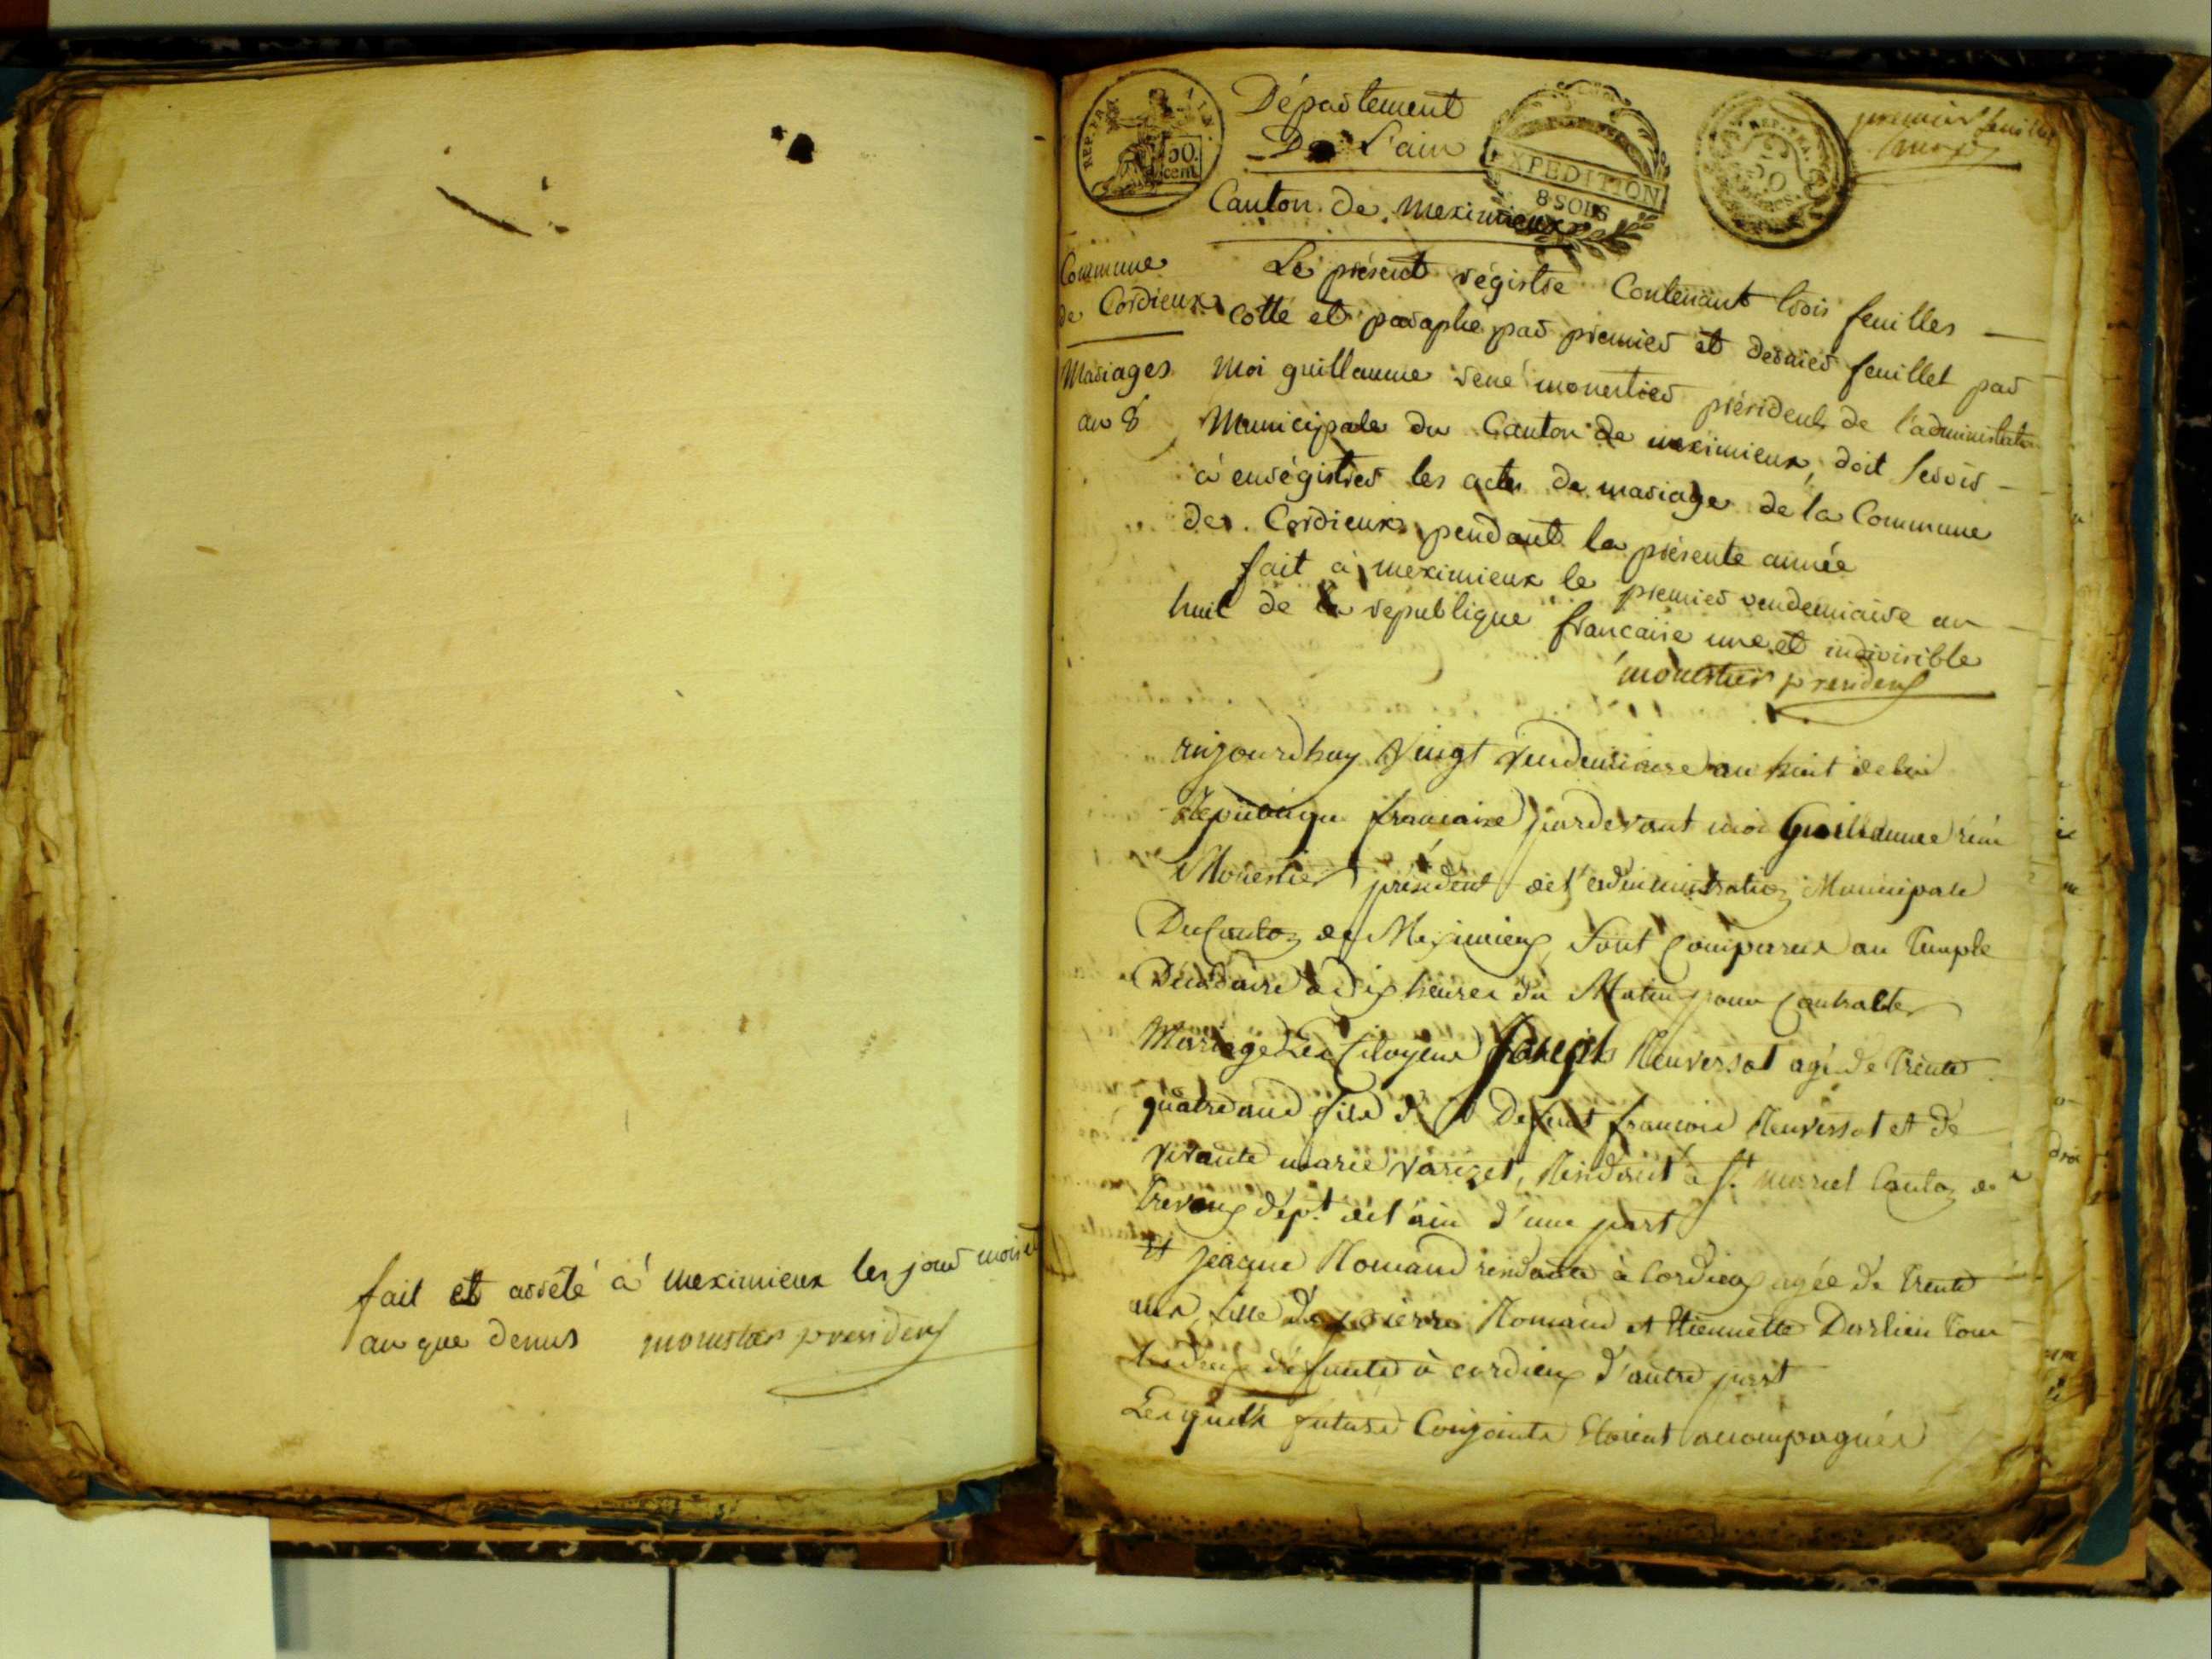 fait et arrêté à meximieux les jour mois et
an que dessus monestier president
REP. FRA.
AIN.
50.
cent.
Département
De L'ain
EXPEDITION
8 SOLS
REP. FRA.
50
premier feuillet
Canton de meximieux
Commune
de Cordieux
Mariages
an 8
Le présent régistre Contenant trois feuilles
cotté et paraphé par premier et dernier feuillet par
Moi guillaume rené monestier président de l'administration
Municipale du Canton de meximieux, doit servir
à enrégistrer les actes de mariage de la Commune
de Cordieux pendant la présente année
fait à meximieux le premier vendemiaire an
huit de la republique francaise une et indivisible
monestier president
aujourdhuy Vingt Vendemiaire an huit de la
Republique francaise pardevant moi Guillaume réné
Monestier président de l'administration Municipale
Du Canton de Meximieux sont Comparus au Temple
Décadaire à dix heures du Matin pour Contracter
Mariage Les Citoyens Joseph Reuversat agé de trente
quatre ans fils de Defunt francois Reuversat et de
vivante marie Varizet, Residant à St. marcel Canton de
Trevoux dépt. de l'ain d'une part
Et jeanne Romand residante à Cordieux agée de trente
ans, fille de pierre Romand et Etiennette Duclieu tous
les deux défunts à cordieux d'autre part
Lesquels futurs Conjoints Etoient accompagnés